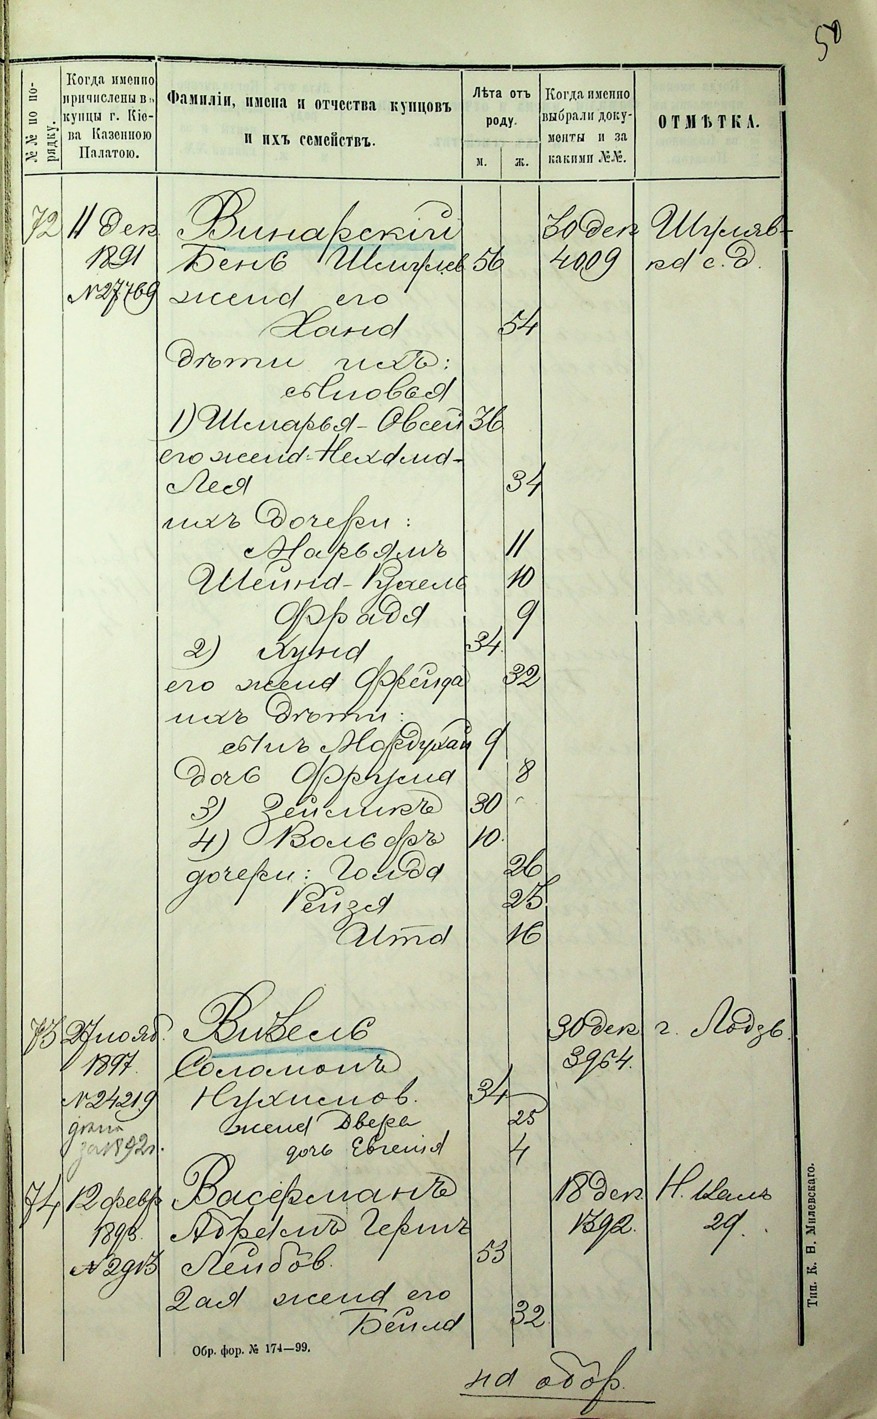 50
№№ по порядку.
Когда именно причислены въ купцы г. Кіева Казенною Палатою.
Фамиліи, имена и отчества купцовъ и ихъ семействъ.
Лѣта отъ роду.
м. ж.
Когда именно выбрали документы и за какими №№.
ОТМѢТКА.
72 11 дек Винарскій 30 дек Шуляв-
1891 Бень Шмулев 56 4009 ка с. д.
№ 27769 жена его
Хана 54
дѣти ихъ:
сыновья
1) Шмарья-Овсей 36
его жена-Нехама-
Лея 34
ихъ дочери:
Марьямъ 11
Шейна-Рухель 10
Фрадя 9
2) Хуна 34
его жена Фрейда 32
ихъ дѣти:
сынъ Мордухай 9
дочь Фрума 8
3) Зейликъ 30
4) Вольфъ 10
дочери: Голда 26
Рейзя 25
Ита 16
73 27 нояб. Визель 30 дек г. Лодзь
1897. Соломонъ 3954.
№ 24219 Нухимов. 34
жена Двера 25
за 1892г. дочь Евгенія 4
74 12 февр Васерманъ 18 дек Н. Валъ
1893. Абрамъ Гершъ 1392. 29.
№ 2913 Лейбов. 53
2ая жена его
Бейла 32
Обр. фор. № 174—99.
на обор.
Тип. К. Н. Милевскаго.